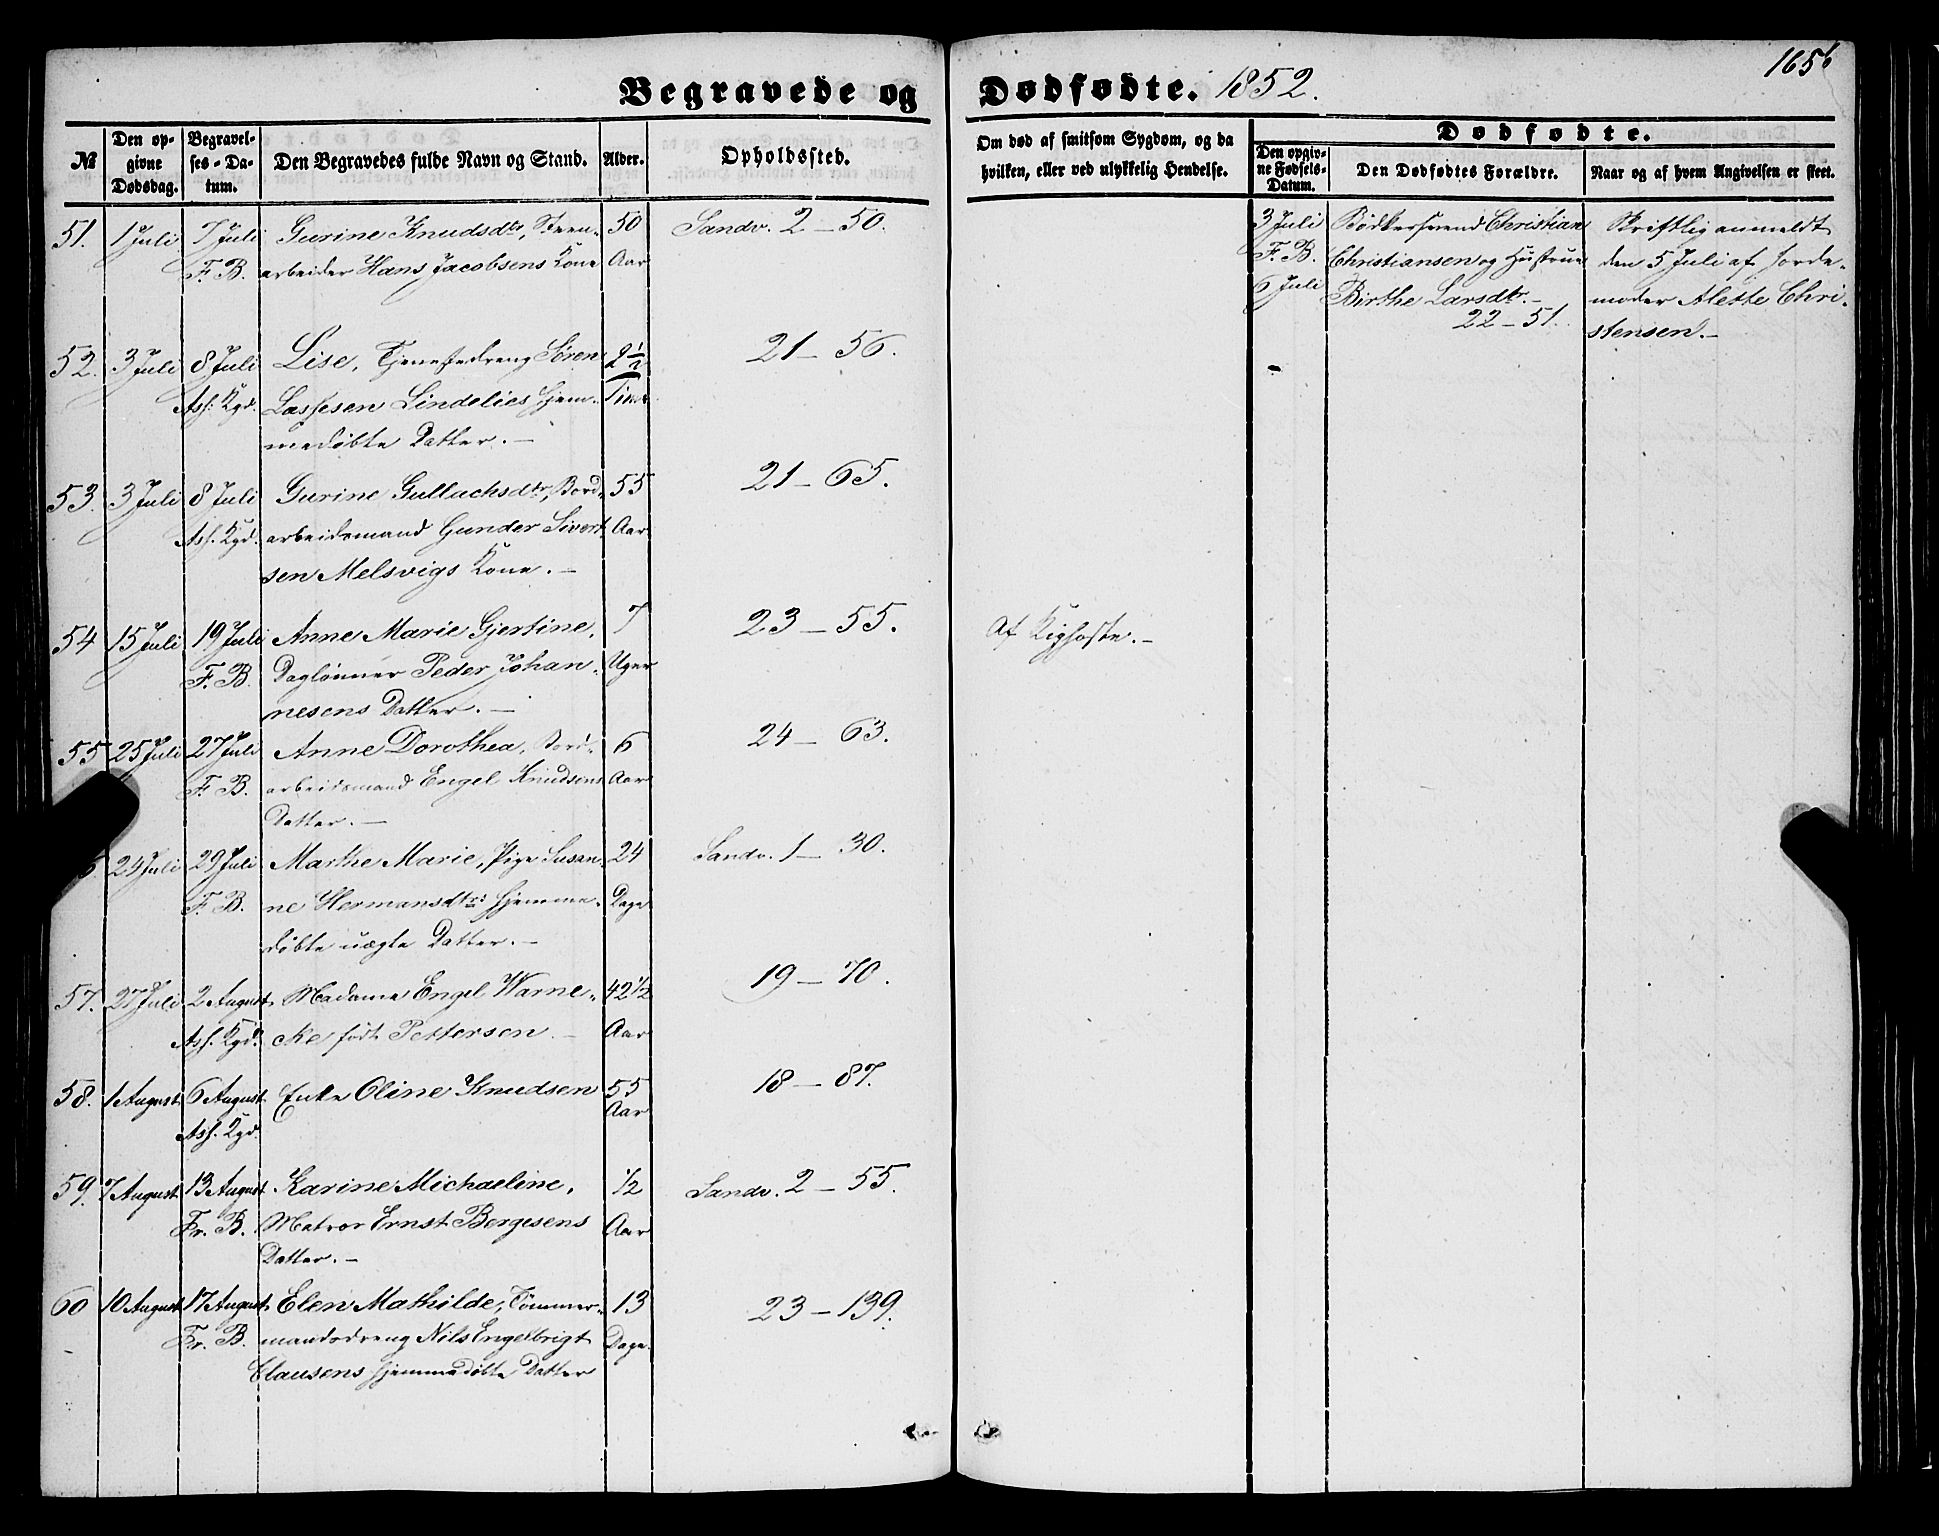 165b
Begravede og Dødfødte. 1852.
№
Den opgivne Dødsdag.
Begravelses-Datum.
Den Begravedes fulde Navn og Stand.
Alder.
Opholdssted.
Om død af smitsom Sygdom, og da hvilken, eller ved ulykkelig Hendelse.
Dødfødte.
Den opgivne Fødsels-Datum.
Den Dødfødtes Forældre.
Naar og af hvem Angivelsen er skeet.
51. 1 Juli 7 Juli Gurine Knudsdtr, Steen- 50 Sandv. 2–50.
F. B. arbeider Hans Jacobsens Kone Aar
52. 3 Juli 8 Juli Lise, Tjenestedreng Sören 2½ 21–56.
Ass. Kgd. Lassesen Lindelies hjem- Timer
medøbte Datter.–
53. 3 Juli 8 Juli Gurine Gullachsdtr, Bord- 55 21–65.
Ass. Kgd. arbeidsmand Gunder Sivert- Aar
sen Melsvigs Kone.–
54 15 Juli 19 Juli Anne Marie Gjertine, 7 23–55. Af Kighoste.–
F. B. Daglönner Peder Johan- Uger
nesens Datter.–
55 25 Juli 27 Juli Anne Dorothea, Bord- 6 24–63.
F. B. arbeidsmand Engel Knudsens Aar
Datter.–
6. 24 Juli 29 Juli Marthe Marie, Pige Susan- 24 Sandv. 1–30.
F. B. ne Hermansdtrs hjemme- Dage
döbte uægte Datter.–
57. 27 Juli 2 August Madame Engel Warne- 42½ 19–70.
Ass. Kgd. cke født Pettersen.– Aar
58. 1 August 6 August Enke Oline Knudsen 55 18–87.
Ass. Kgd. Aar
59. 7 August 13 August Karine Michaeline, ½ Sandv. 2–55.
Fr. B. Matros Ernst Børgesens Aar
Datter.–
60 10 August 17 August Elen Mathilde, Tömmer- 13 23–139.
Fr. B. mandsdreng Nils Engelbrigt Dage.
Clausens hjemmedöbte Datter
3 Juli Bödkersvend Christian Skriftlig anmeldt
F. B. Christiansen og Hustrue den 5 Juli af Jorde-
6 Juli Birthe Larsdtr.– moder Alette Chri-
22–51. stensen.–